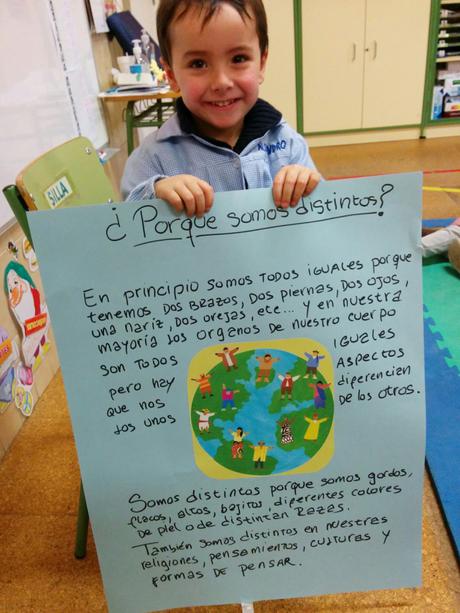 SILLA
¿Porque somos distintos?
En principio somos TODOS iguales porque
tenemos DOS BRAZOS, DOS piernas, DOS OJOS,
una nariz, DOS orejas, etc... y en nuestra
mayoría los organos de nuestro cuerpo
son TODOS IGUALES
pero hay ASPECTOS
que nos diferencien
los unos de los otros.
Somos distintos porque somos gordos,
flacos, altos, bajitos, diferentes colores
de piel o de distintan Razas.
También somos distintos en nuestras
religiones, pensamientos, culturas y
formas de PENSAR.